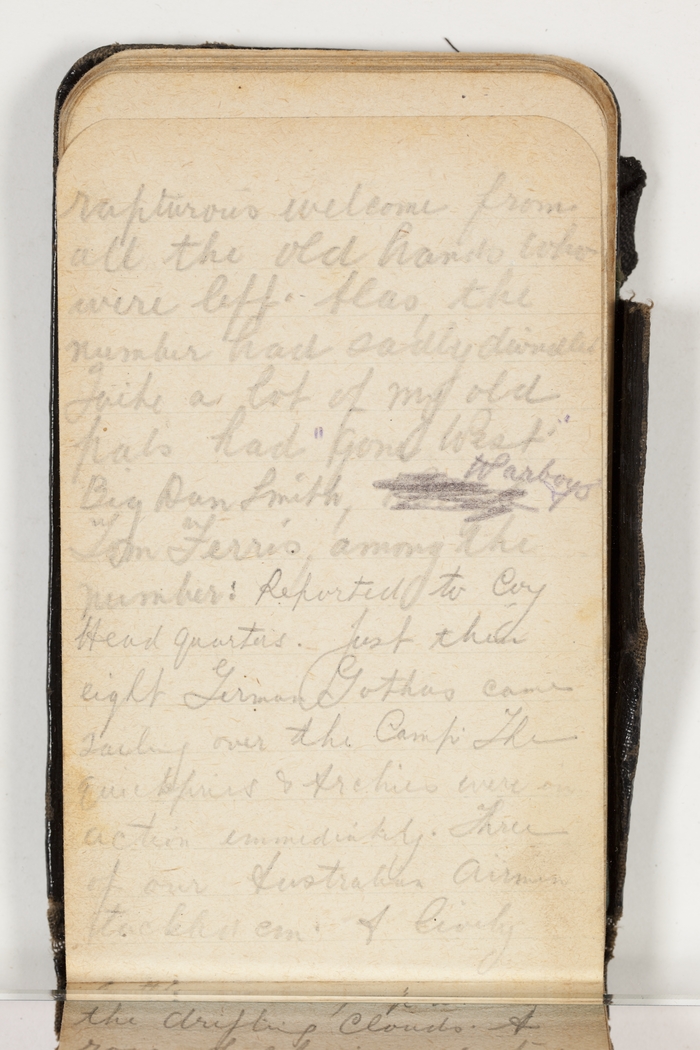 rapturous welcome from
all the old hands who
were left. Alas, the
number had sadly dwindled
Quite a lot of my old
pals had "gone West"
Big Dan Smith, Warboys
Tom Ferris, among the
number: Reported to Coy
Head quarters. Just then
eight German Gothas came
sailing over the Camp. The
quickfires & Archies were in
action immediately. Three
of our Australian Airmen
A lively
the drifting clouds. A